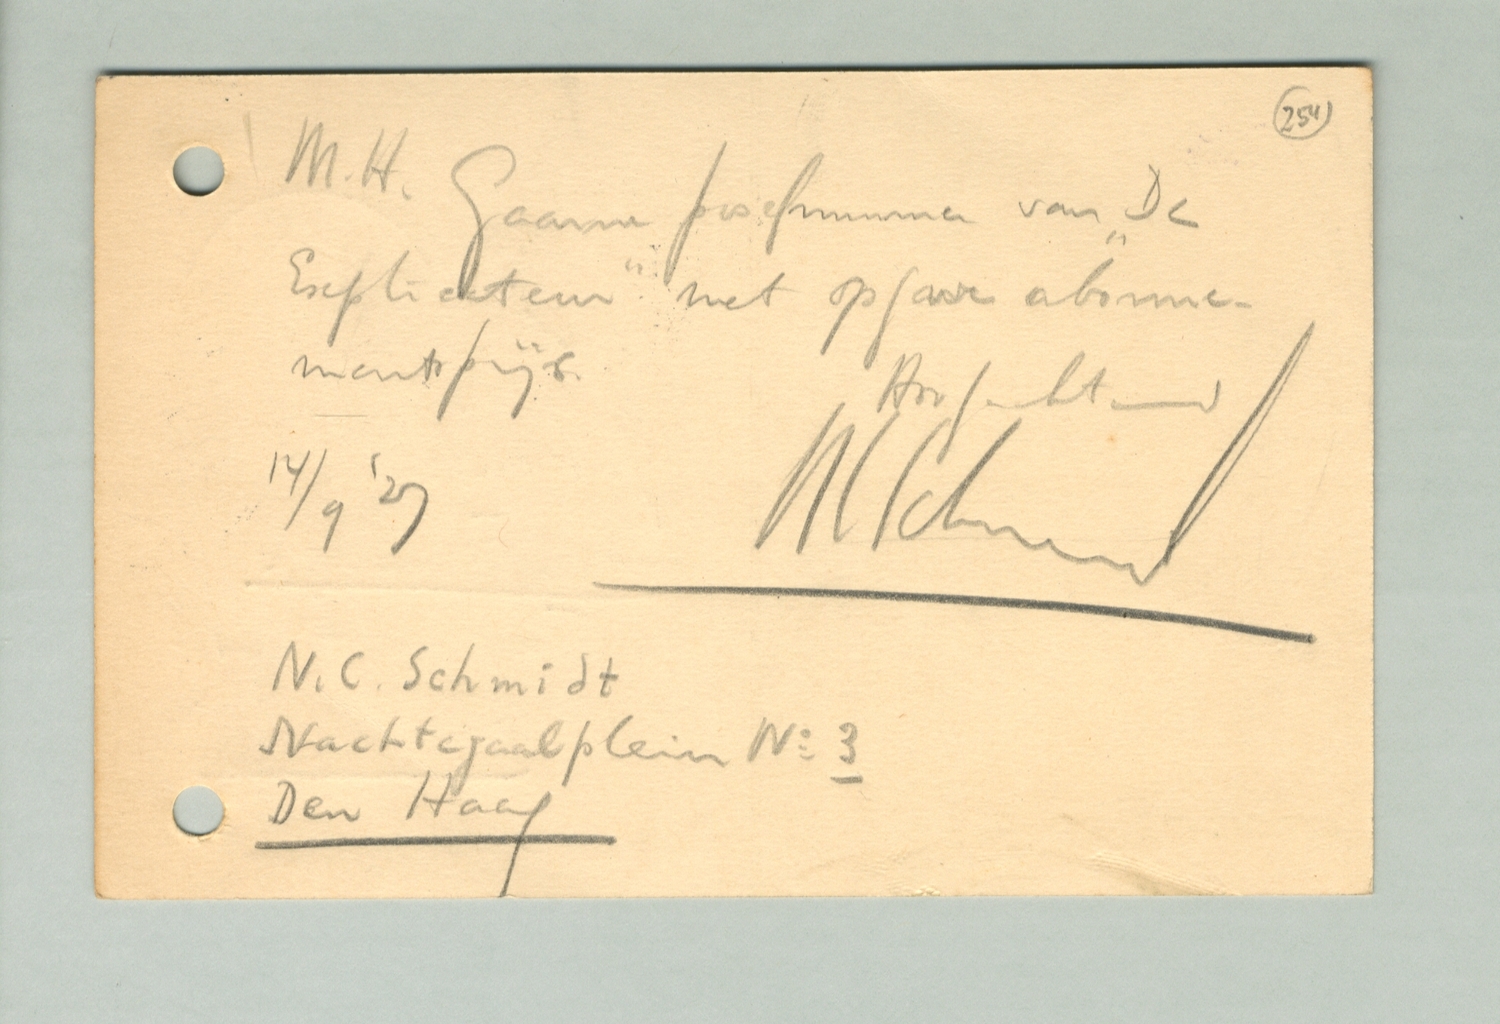 254
M.H. Gaarne proefnummer van „De
Explicateur" met opgave abonne-
mentsprijs.
Hoogachtend
14/9 '27
NCSchmidt
N.C. Schmidt
Nachtegaalplein No: 3
Den Haag